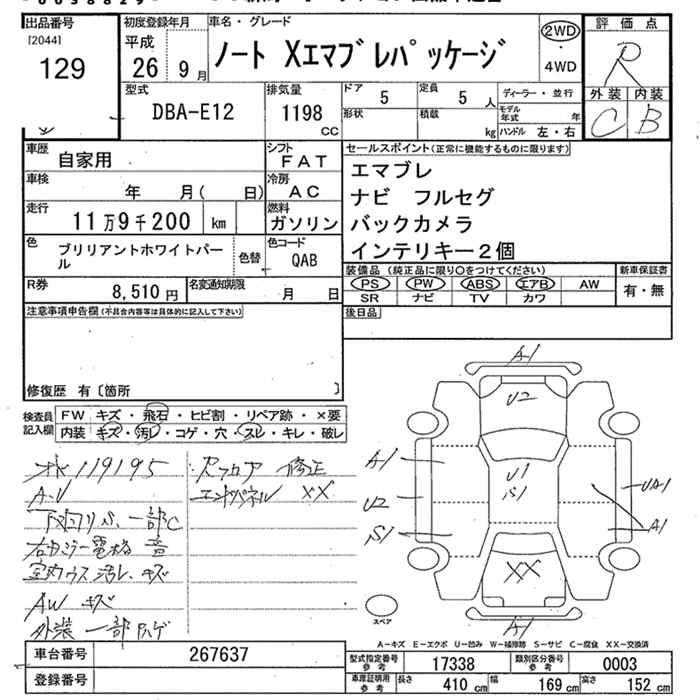 出品番号
[2044]
129
初度登録年月
平成
26年 9月
車名・グレード
ノート Xエマブレパッケージ
2WD
・
4WD
評価点
R
外装 内装
C B
型式
DBA-E12
排気量
1198
CC
ドア
5
定員
5 人
形状
積載
kg
ディーラー・並行
モデル年式 年
ハンドル 左・右
車歴
自家用
シフト
FAT
車検
年 月( 日)
冷房
AC
走行
11万9千200 km
燃料
ガソリン
色
ブリリアントホワイトパール
色替
色コード
QAB
R券
8,510円
名変通知期限
月 日
セールスポイント(正常に機能するものに限ります)
エマブレ
ナビ フルセグ
バックカメラ
インテリキー2個
装備品 (純正品に限り○をつけてください)
PS PW ABS エアB AW
SR ナビ TV カワ
新車保証書
有・無
後日品
注意事項申告欄(不具合内容等は具体的に記入して下さい)
修復歴 有〔箇所 〕
検査員記入欄
FW キズ・飛石・ヒビ割・リペア跡・×要
内装 キズ・汚レ・コゲ・穴・スレ・キレ・破レ
119195
A-V
一部C
室内ウス汚レ、キズ
AW キズ
外装 一部ハゲ
リアフロア 修正
エンドパネル XX
A1
U2
A1
U1
S1
U2
UA1
S1
A1
XX
A1
スペア
A-キズ E-エクボ U-凹み W-補修跡 S-サビ C-腐食 XX-交換済
車台番号
267637
登録番号
型式指定番号
参考
17338
類別区分番号
参考
0003
車庫証明用
参考
長さ
410 cm
幅
169 cm
高さ
152 cm